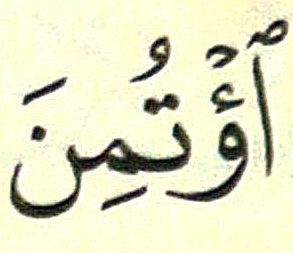 ٱؤۡتُمِنَ